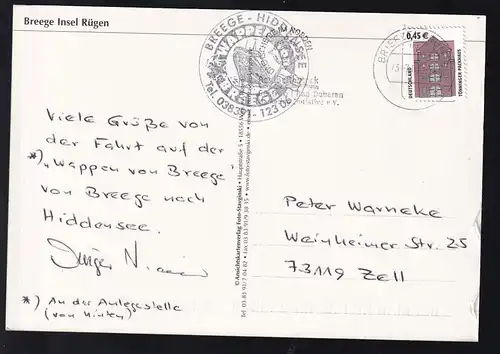 Breege Insel Rügen
BREEGE - HIDDENSEE
Tel. 038391 - 123 06
0,45 €
DEUTSCHLAND
TÖNNINGER PACKHAUS
Viele Grüße von
der Fahrt auf der
*) "Wappen von Breege"
von Breege nach
Hiddensee.
*) An der Anlegestelle
(von hinten)
© Ansichtskartenverlag Foto-Starginski · Hauptstraße 5 · 18556
Tel 03 83 91/7 04 82 · Fax 03 83 91/9 38 95 · www.foto-starginski.de
Peter Warneke
Weinheimer Str. 25
73119 Zell